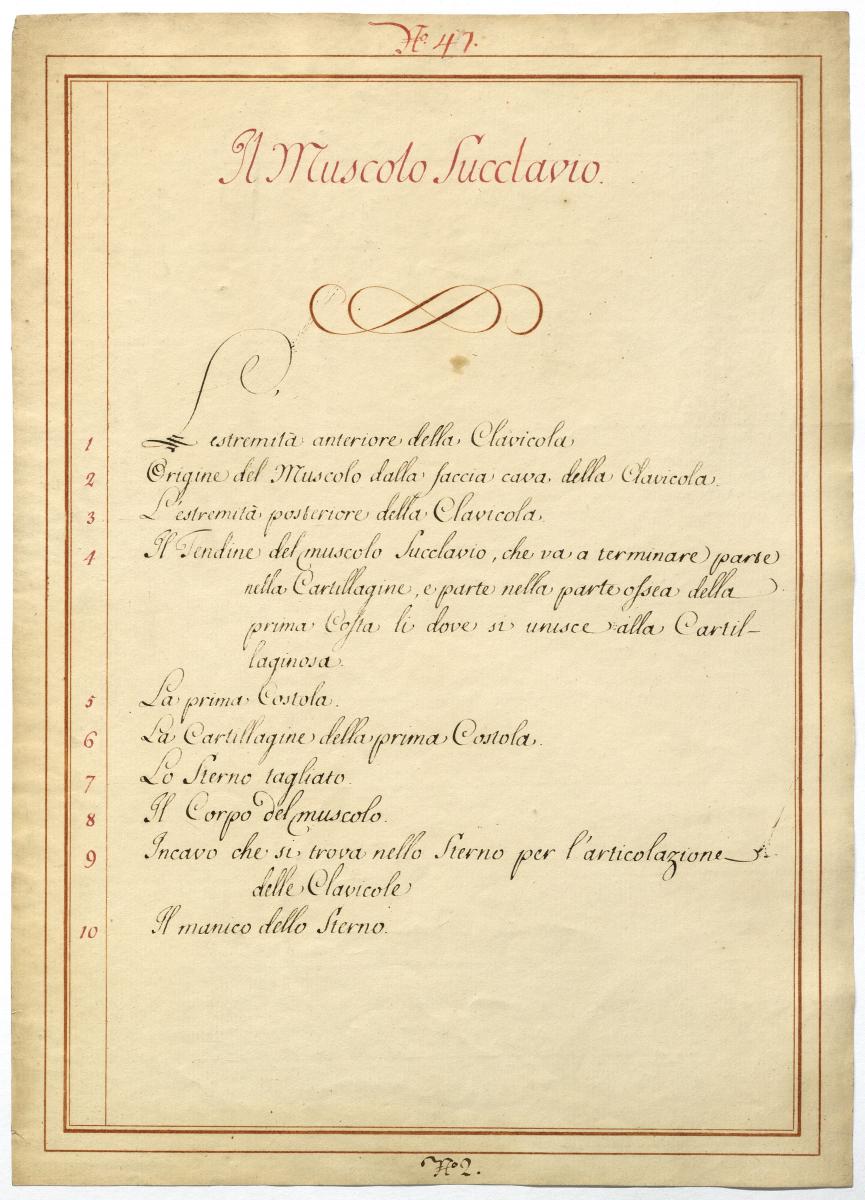 No. 47.
Il Muscolo Succlavio.
1 L'estremità anteriore della Clavicola
2 Origine del Muscolo dalla faccia cava della Clavicola.
3 L'estremità posteriore della Clavicola.
4 Il Tendine del muscolo Succlavio, che va a terminare parte
nella Cartillagine, e parte nella parte ossea della
prima Costa li dove si unisce alla Cartil-
laginosa.
5 La prima Costola.
6 La Cartillagine della prima Costola.
7 Lo Sterno tagliato.
8 Il Corpo del muscolo.
9 Incavo che si trova nello Sterno per l'articolazione
delle Clavicole
10 Il manico dello Sterno.
No. 2.